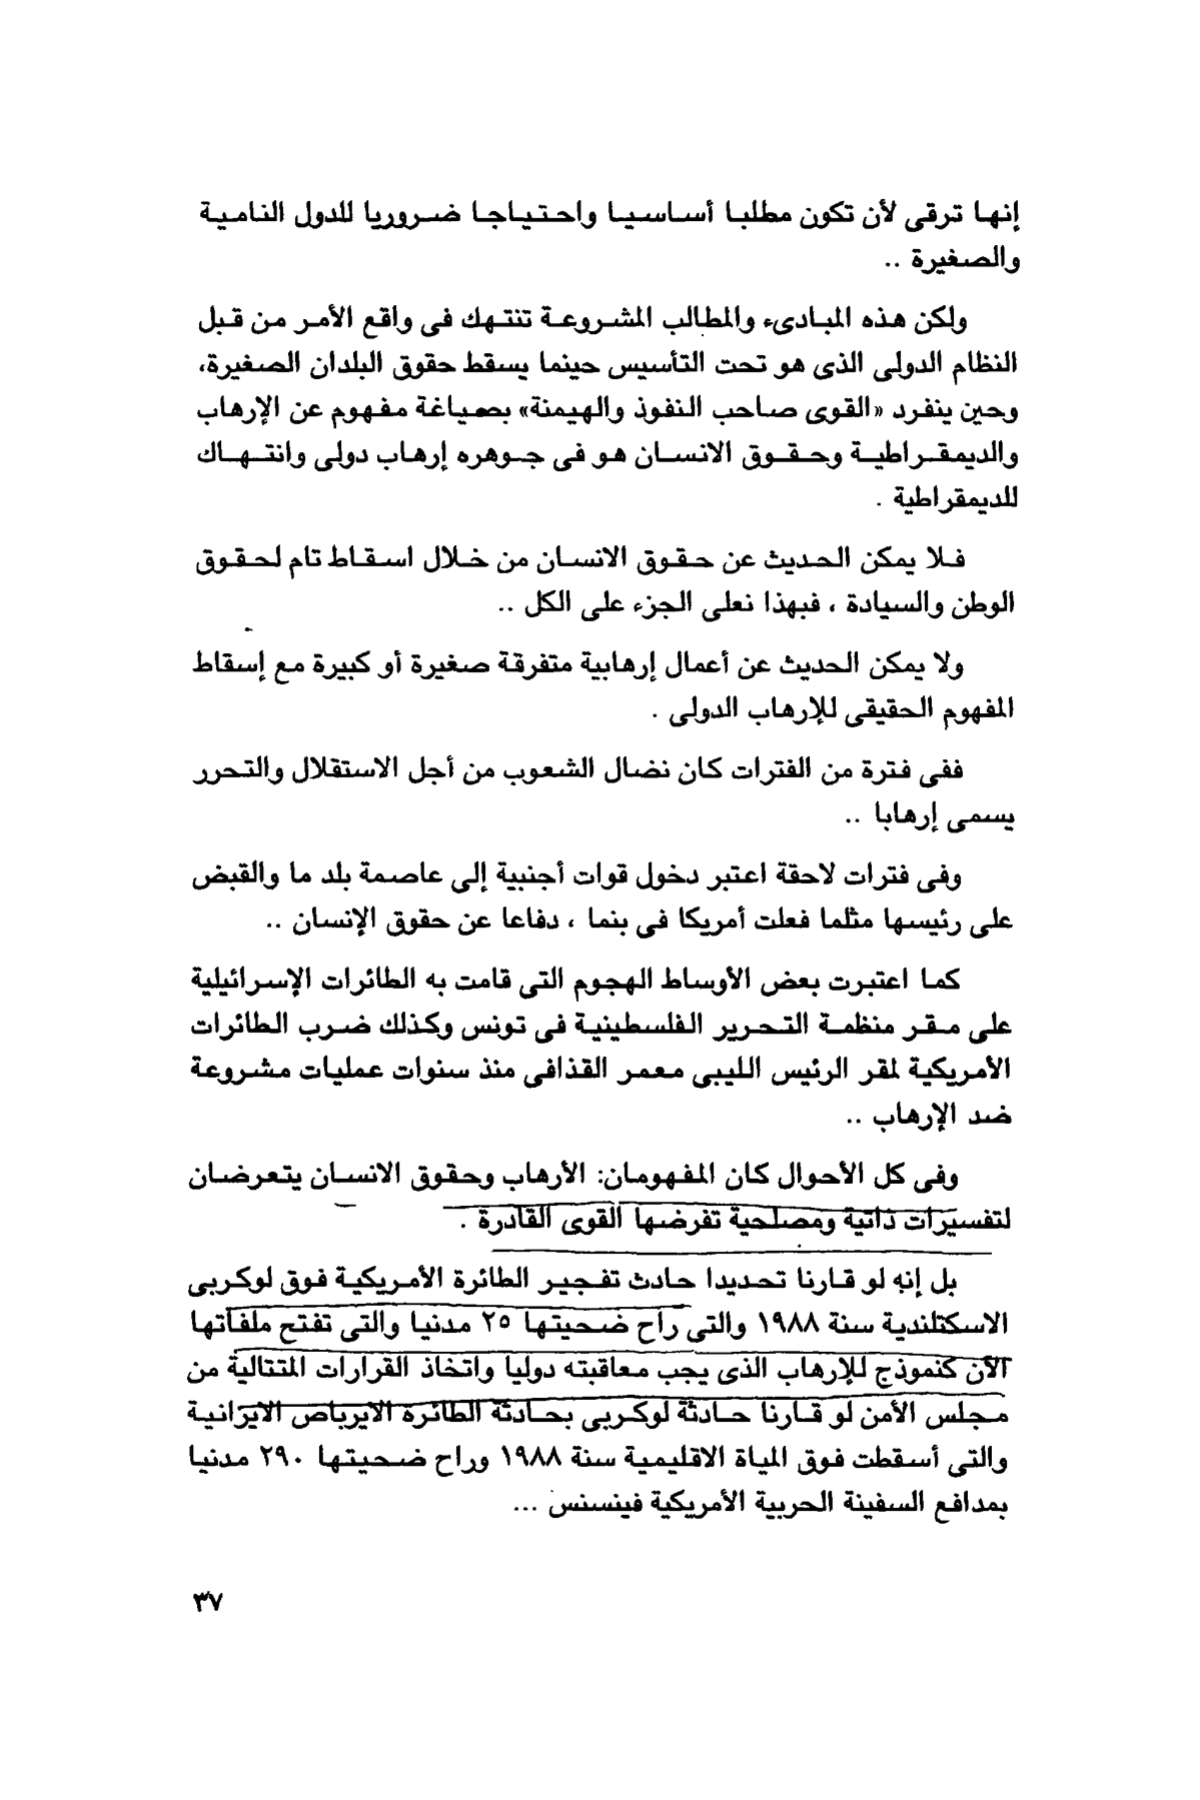 إنها ترقى لأن تكون مطلبا أساسيا واحتياجا ضروريا للدول النامية
والصغيرة ..
ولكن هذه المبادىء والمطالب المشروعة تنتهك فى واقع الأمر من قبل
النظام الدولى الذى هو تحت التأسيس حينما يسقط حقوق البلدان الصغيرة،
وحين ينفرد «القوى صاحب النفوذ والهيمنة» بصياغة مفهوم عن الإرهاب
والديمقراطية وحقوق الانسان هو فى جوهره إرهاب دولى وانتهاك
للديمقراطية .
فلا يمكن الحديث عن حقوق الانسان من خلال اسقاط تام لحقوق
الوطن والسيادة ، فبهذا نعلى الجزء على الكل ..
ولا يمكن الحديث عن أعمال إرهابية متفرقة صغيرة أو كبيرة مع إسقاط
المفهوم الحقيقى للإرهاب الدولى .
ففى فترة من الفترات كان نضال الشعوب من أجل الاستقلال والتحرر
يسمى إرهابا ..
وفى فترات لاحقة اعتبر دخول قوات أجنبية إلى عاصمة بلد ما والقبض
على رئيسها مثلما فعلت أمريكا فى بنما ، دفاعا عن حقوق الإنسان ..
كما اعتبرت بعض الأوساط الهجوم التى قامت به الطائرات الإسرائيلية
على مقر منظمة التحرير الفلسطينية فى تونس وكذلك ضرب الطائرات
الأمريكية لمقر الرئيس الليبى معمر القذافى منذ سنوات عمليات مشروعة
ضد الإرهاب ..
وفى كل الأحوال كان المفهومان: الأرهاب وحقوق الانسان يتعرضان
لتفسيرات ذاتية ومصلحية تفرضها القوى القادرة .
بل إنه لو قارنا تحديدا حادث تفجير الطائرة الأمريكية فوق لوكربى
الاسكتلندية سنة ١٩٨٨ والتى راح ضحيتها ٢٥ مدنيا والتى تفتح ملفاتها
الآن كنموذج للإرهاب الذى يجب معاقبته دوليا واتخاذ القرارات المتتالية من
مجلس الأمن لو قارنا حادثة لوكربى بحادثة الطائرة الايرباص الايرانية
والتى أسقطت فوق المياة الاقليمية سنة ١٩٨٨ وراح ضحيتها ٢٩٠ مدنيا
بمدافع السفينة الحربية الأمريكية فينسنس ...
٣٧